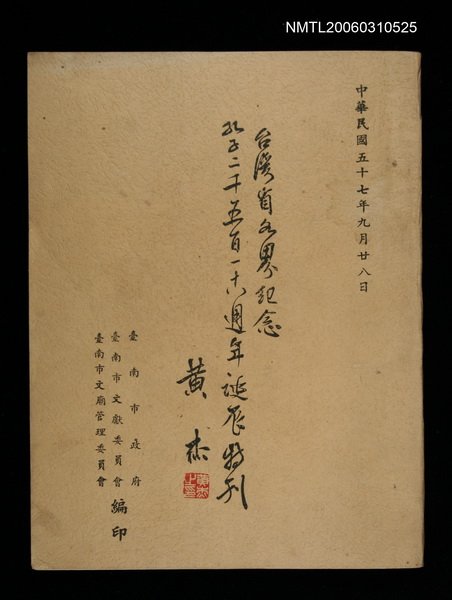 NMTL20060310525
中華民國五十七年九月廿八日
台灣省各界記念
孔子二千五百一十八週年誕辰特刊
黃杰
臺南市政府
臺南市文獻委員會 編印
臺南市文廟管理委員會